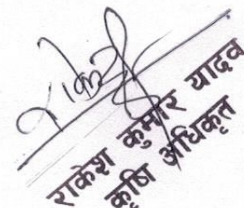 राकेश
राकेश कुमार यादव
कृषि अधिकृत